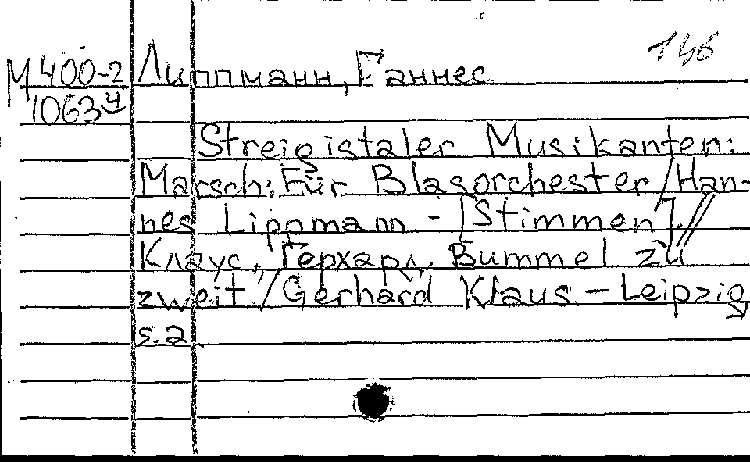 146
М400-2 Липпманн, Ганнес
1063ч
Streigistaler Musikanten:
Marsch: Für Blasorchester/Han-
nes Lippmann - [Stimmen]. //
Клаус, Герхард. Bummel zu
zweit / Gerhard Klaus - Leipzig
s.a.